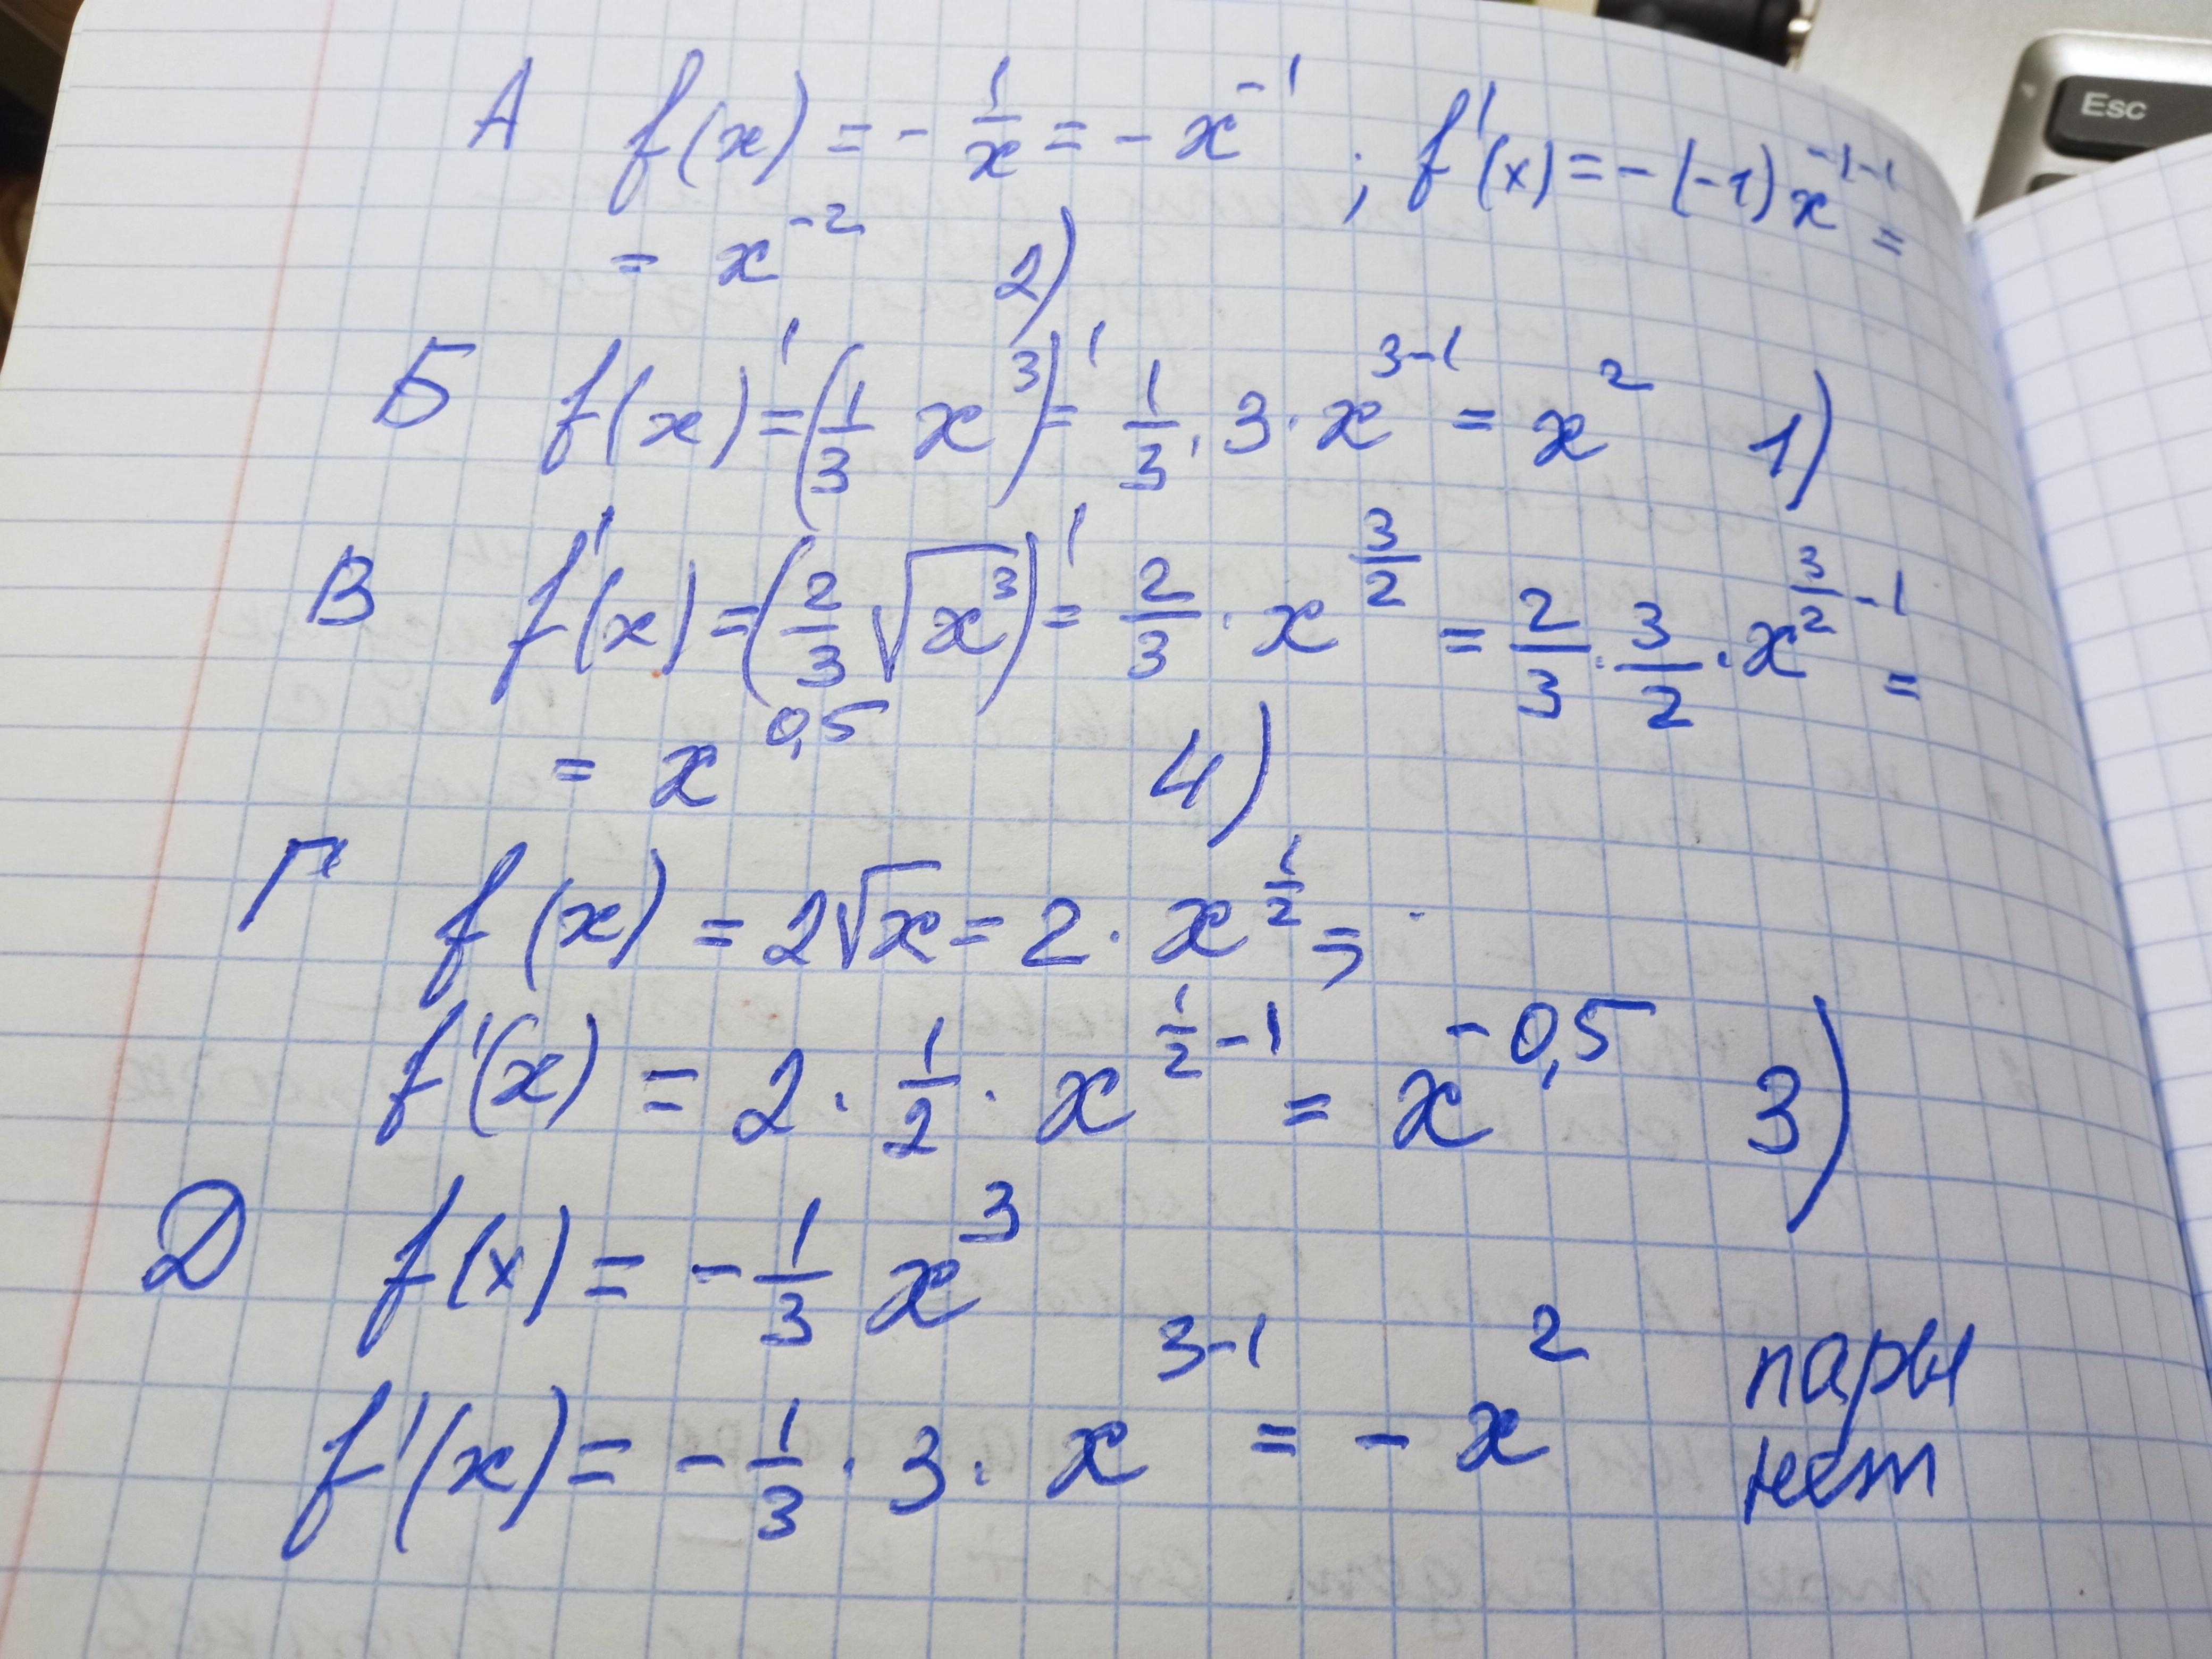 Esc
А f(x) = - 1/x = - x^-1 ; f'(x) = - (-1) x^-1-1 =
= x^-2 2)
Б f(x)' = (1/3 x^3)' = 1/3 · 3 · x^3-1 = x^2 1)
В f'(x) = (2/3 √x^3)' = 2/3 · x^3/2 = 2/3 · 3/2 · x^3/2-1 =
= x^0,5 4)
Г f(x) = 2√x = 2 · x^1/2 = ;
f'(x) = 2 · 1/2 · x^1/2-1 = x^-0,5 3)
Д f(x) = - 1/3 x^3
f'(x) = - 1/3 · 3 · x^3-1 = - x^2 пары
нет